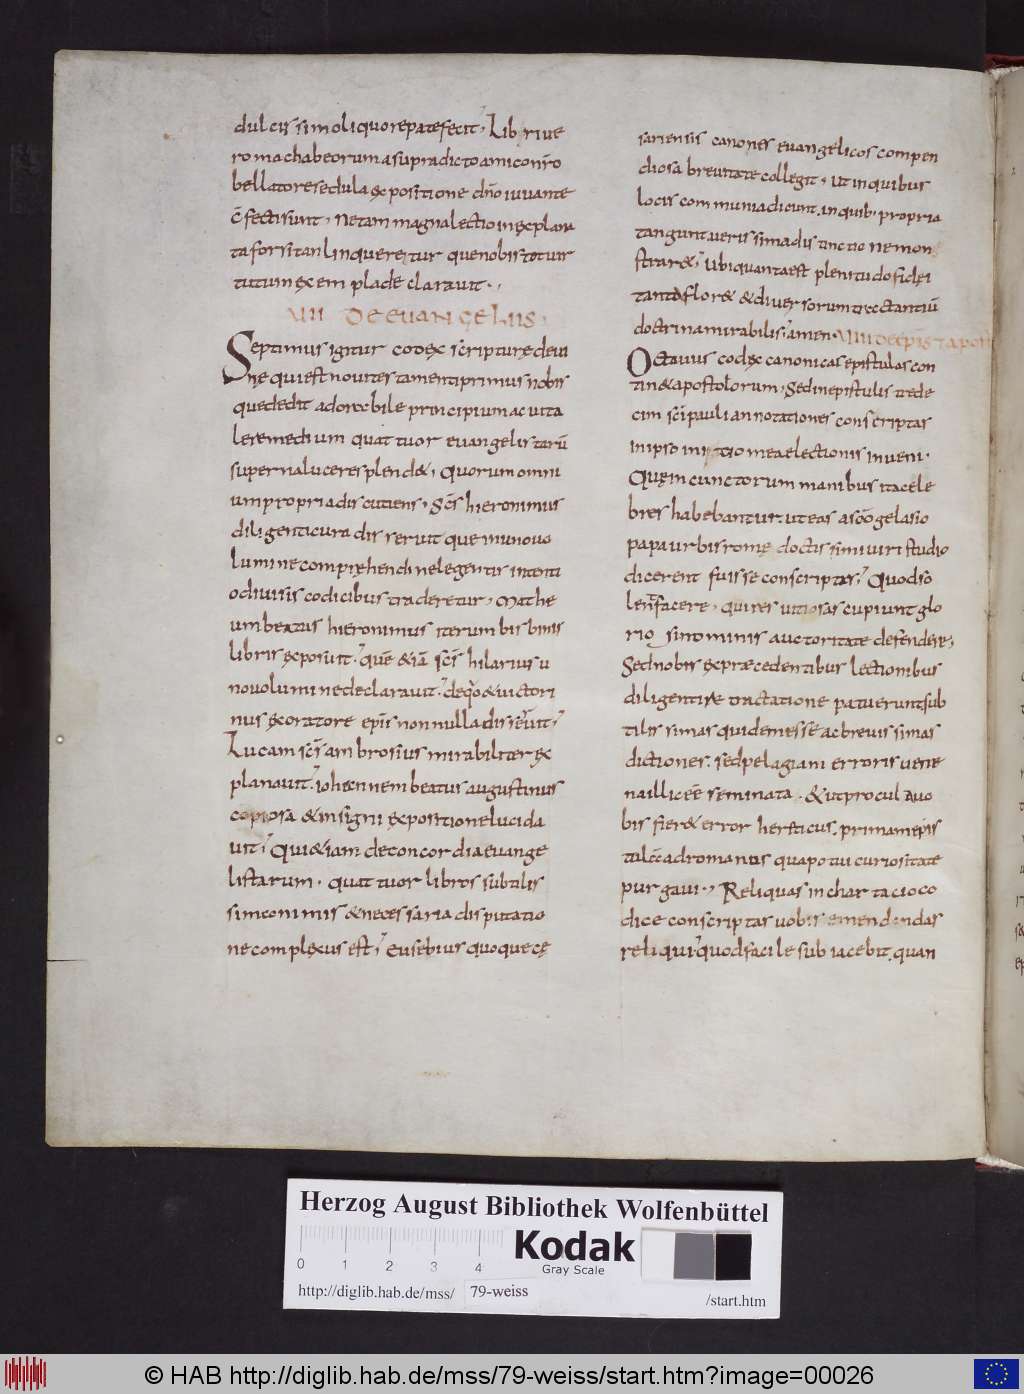 dulcissimoliquorepatefecit, Libriue
romachabeorumasupradictoamiconr̄o
bellatoresedulaęxpositione dn̄oiuuante
c̄fectisunt, Netammagnalectioinęxplana
taforsitanlinqueretur quenobistotuir
tutumęxemplade clarauit.,
VII DEEUANGELIIS.
Septimusigitur codęx scripturędeui
nęquiestnouitestamentiprimusnobis
quededit adorabile principiumacuita
leremedium quattuor euangelistarū
supernaluceresplend&, Quorumomni
umpropriadiscutiens, Scs̄ hieronimus
diligenticura disseruit queinunouo
luminecomprẹhendinelegentis intenti
odiuisis codicibus traderetur, Mathe
umbeatus hieronimus iterumbisbinis
librisęxposuit, quē&iā scs̄ hilariusu
nouoluminedeclarauit, deq̊&uictori
nus ęxoratore ep̄is nonnulladisseruit,
Lucam scs̄ ambrosius mirabiliter ęx
planauit, iohannem beatus augustinus
copiosa &insigni ęxpositionelucida
uit, Qui&iam deconcordiaeuange
listarum. quattuor libros subtilis
simonimis &necessaria disputatio
necomplęxus est, Eusebius quoquecę
sariensis canones euangelicos compen
diosa breuitatecollegit, utinquibus
locis communiadicunt.inquib; propria
tanguntuerissimadistinctionemon
strar&, Ubiquantaest plenitudofidęi
tant&flor& &diuersorumtractantiū
doctrinamirabilis, amen. VIII deep̄is
Octauus codęx canonicasepistulascon
tin&apostolorum, Sedinepistulis trede
cim sc̄ipauliannotationes conscriptas
inipso initiomeaelectionis inueni.
Quęincunctorum manibus itacele
bres habebantur.uteas ascōgelasio
papaurbisromę doctissimiuiri studio
dicerent fuisseconscriptas, Quodso
lentfacere, quires uitiosascupiuntglo
riosi nominis auctoritate defendere,
Sednobis ęxpręcedentibus lectionibus
diligentire tractatione patueruntsub
tilissimas quidemesse acbreuissimas
dictiones. sedpelagiani erroris uene
naillicēe seminata. &utprocul auo
bis fier& error herfticus, primamep̄is
tulaadromanus quapotui curiositate
purgaui., Reliquas inchartacioco
dice conscriptas uobis emendandas
reliqui, quodfacile subiacebit.quan
Herzog August Bibliothek Wolfenbüttel
0 1 2 3 4 Kodak
Gray Scale
http://diglib.hab.de/mss/ 79-weiss /start.htm
© HAB http://diglib.hab.de/mss/79-weiss/start.htm?image=00026